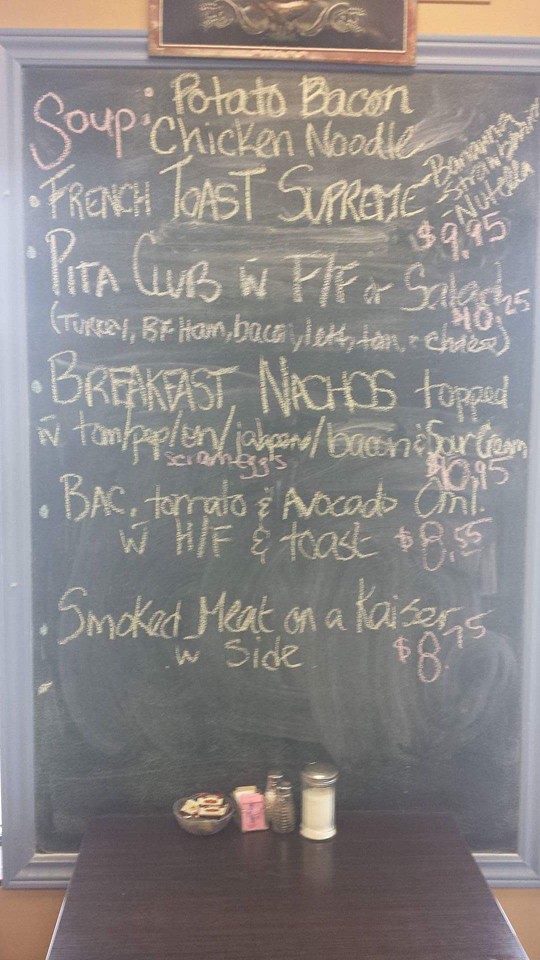 Soup: Potato Bacon
Chicken Noodle
• FRENCH TOAST SUPREME
- Bananna
- Strawberries
- Nutella
$9.95
• PITA CLUB w F/F or Salad
$10.25
(TURKEY, BF Ham, bacon, lett, tom, + cheese)
• BREAKFAST NACHOS topped
w tom/pep/on/jalapen/bacon & Sour Cream
scram eggs
$10.95
• BAC, tomato & Avocado Oml.
w H/F & toast $8.55
• Smoked Meat on a Kaiser
w Side $8.75